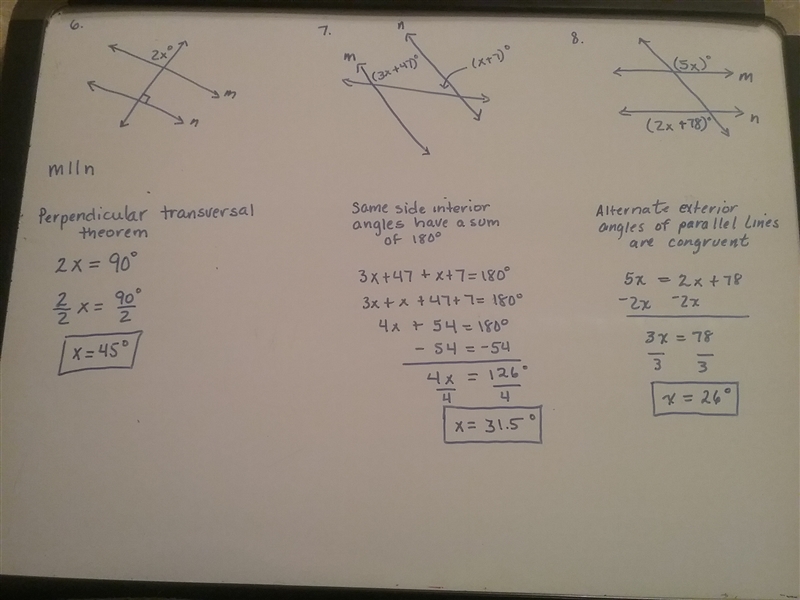 6.
2x°
m
n
m||n
Perpendicular transversal
theorem
2x = 90°
2/2 x = 90°/2
x = 45°
7.
n
m
(3x+47)°
(x+7)°
Same side interior
angles have a sum
of 180°
3x+47 + x+7 = 180°
3x + x + 47+7 = 180°
4x + 54 = 180°
- 54 = -54
4x/4 = 126°/4
x = 31.5°
8.
(5x)°
m
n
(2x+78)°
Alternate exterior
angles of parallel lines
are congruent
5x = 2x + 78
-2x -2x
3x/3 = 78/3
x = 26°